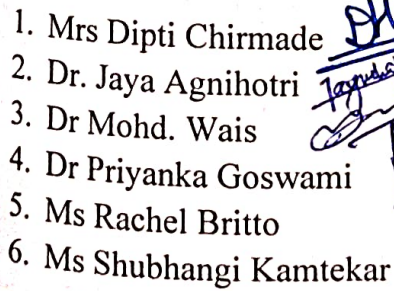 1. Mrs Dipti Chirmade
2. Dr. Jaya Agnihotri
3. Dr Mohd. Wais
4. Dr Priyanka Goswami
5. Ms Rachel Britto
6. Ms Shubhangi Kamtekar